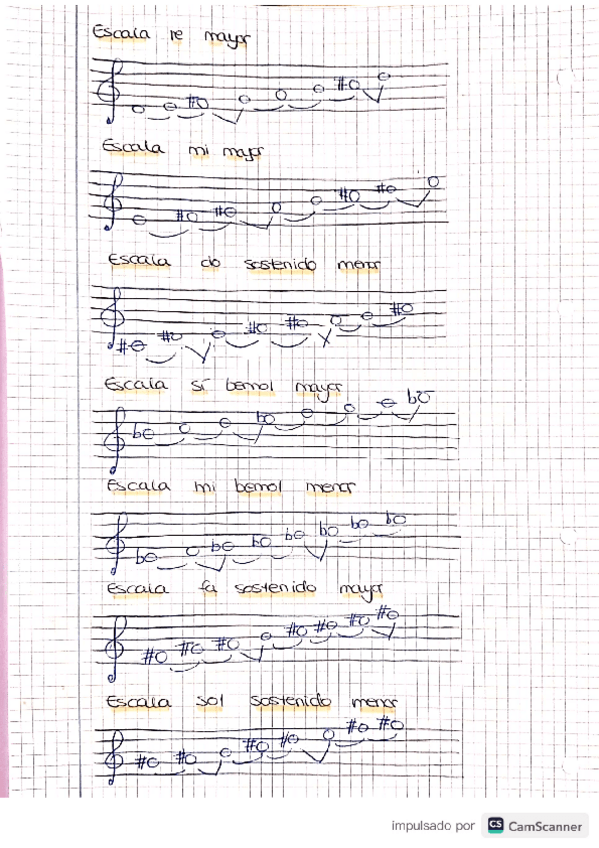 Escala re mayor
Escala mi mayor
Escala do sostenido menor
Escala si bemol mayor
Escala mi bemol menor
Escala fa sostenido mayor
Escala sol sostenido menor
impulsado por CS CamScanner